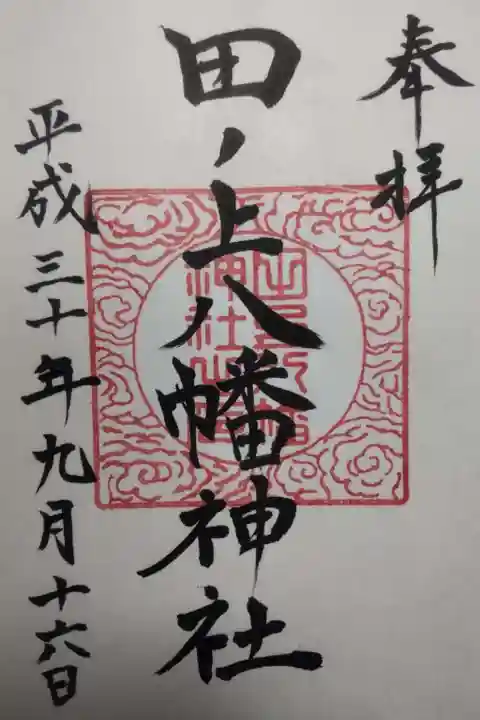 奉拝
田ノ上八幡神社
平成三十年九月十六日